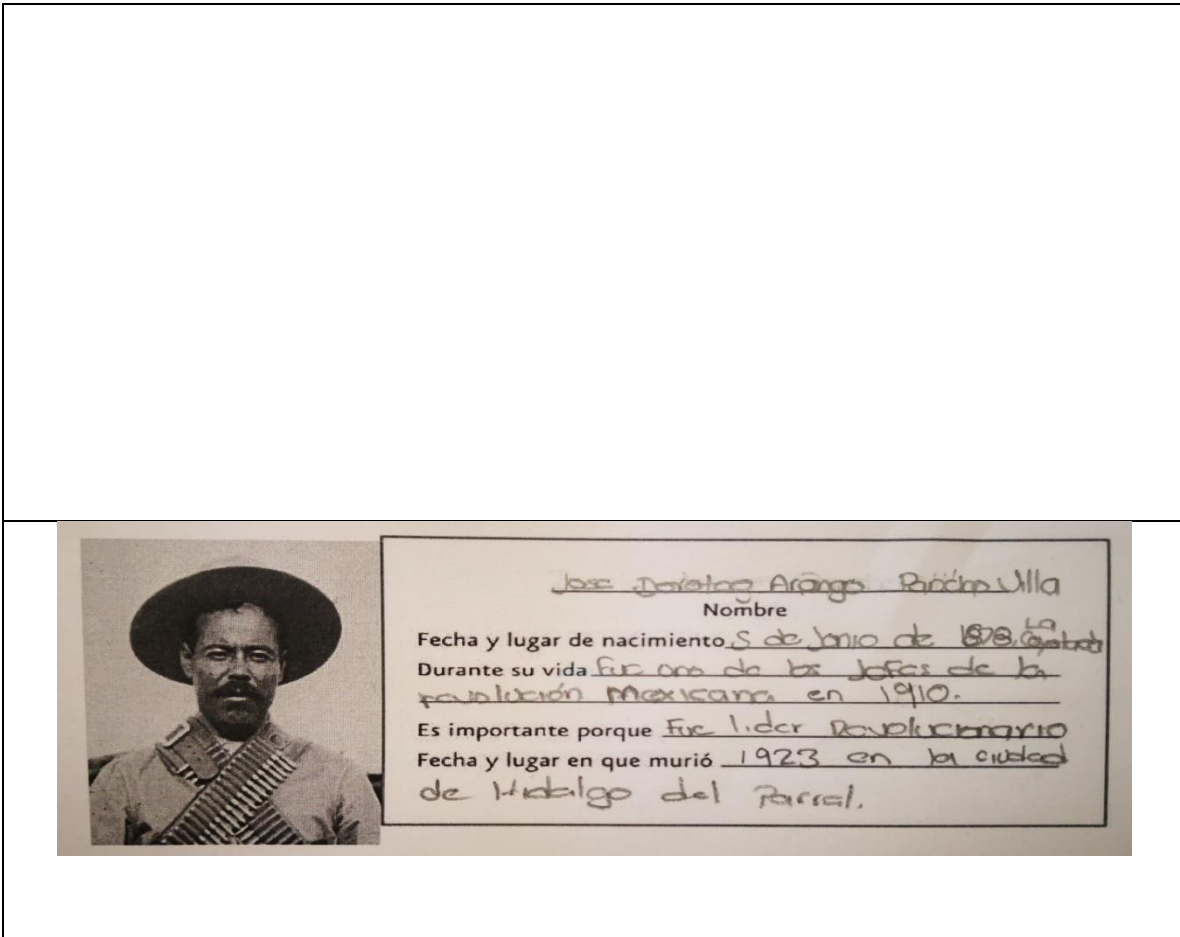 Jose Doroteo Arango Pancho Villa
Nombre
Fecha y lugar de nacimiento 5 de Junio de 1878, La Coyotada
Durante su vida fue uno de los Jefes de la
revolución Mexicana en 1910.
Es importante porque Fue lider Revolucionario
Fecha y lugar en que murió 1923 en la ciudad
de Hidalgo del Parral.